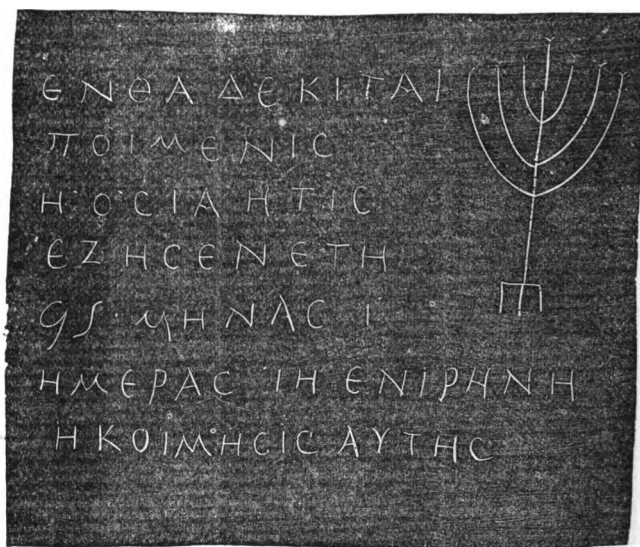 ЄΝΘΑ ΔЄ ΚΙΤΑΙ
ΠΟΙΜЄΝΙϹ
Η·Ο·ϹΙΑ ΗΤΙϹ
ЄΖΗϹЄΝ ЄΤΗ
ϞϚ · ΜΗΝΑϹ Ι
ΗΜЄΡΑϹ ΙΗ ЄΝ ΙΡΗΝΗ
Η ΚΟΙΜΗϹΙϹ ΑΥΤΗϹ